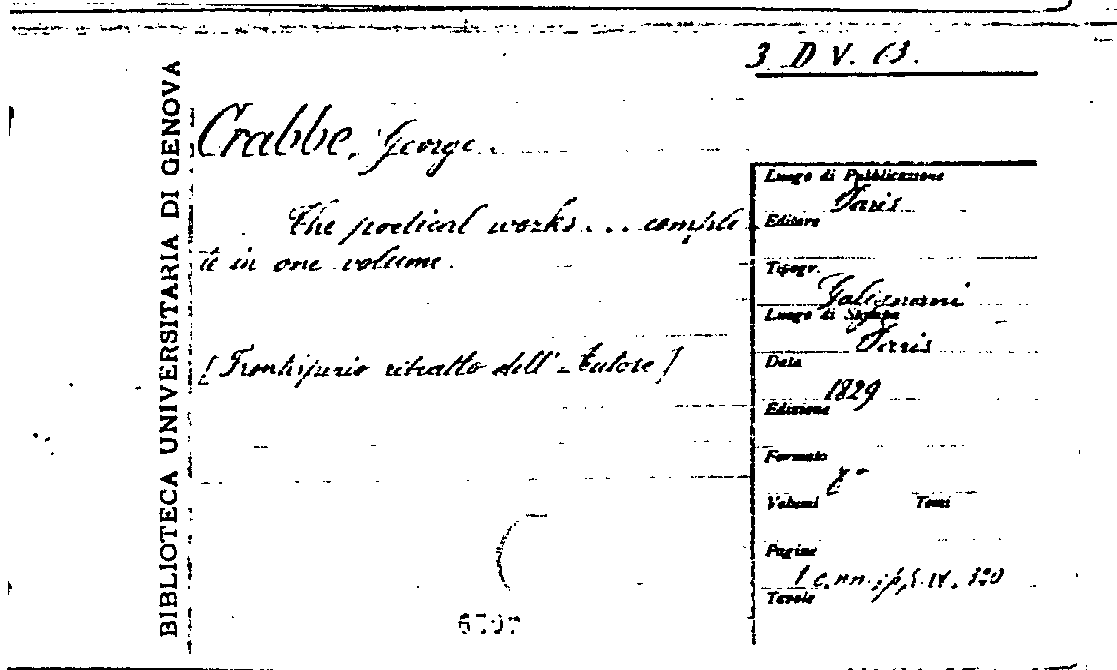 3 D V. 63.
BIBLIOTECA UNIVERSITARIA DI GENOVA
Crabbe, George.
The poetical works... comple
te in one volume.
[Frontispizio ritratto dell'Autore]
Luogo di Pubblicazione
Paris
Editore
Tipogr.
Galignani
Luogo di Stampa
Paris
Data
1829
Edizione
Formato
8°
Volumi Tomi
Pagine
1 c. nn., pp.
Tavole